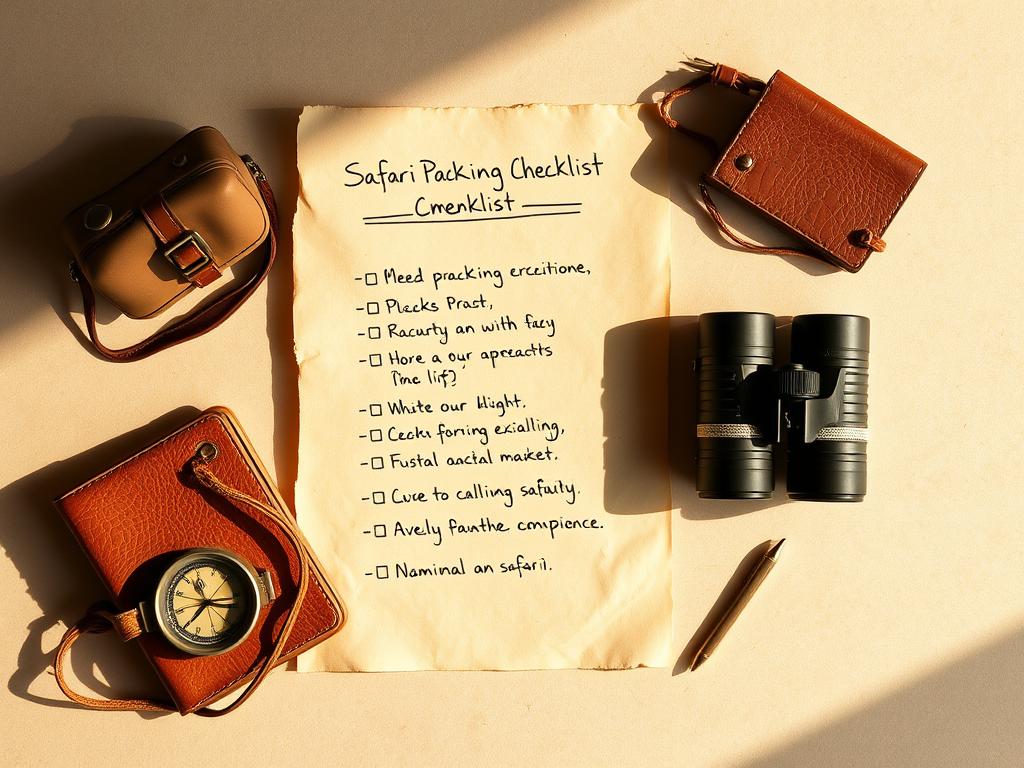 Safari Packing Checklist
Cmenklist
-☐ Meed pracking ercectione,
-☐ Plecks Prast,
-☐ Racurty an with facy
-☐ Hore a our apreactts
Tine lif?
-☐ White our klight.
-☐ Cecku forring exialling,
-☐ Fustal anctal maiket.
-☐ Cure to calling safuity.
-☐ Avely fanthe cmpience.
-☐ Naminal an safari.